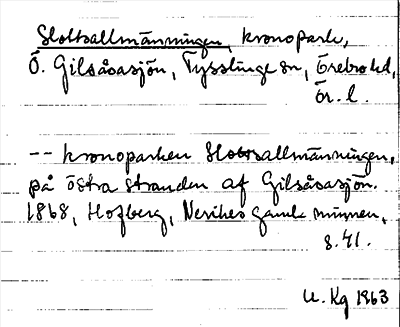 Slottsallmänningen, kronopark,
Ö. Gilsåsasjön, Tysslinge sn, Örebro hd,
Ör. l.
-- kronoparken Slottsallmänningen,
på östra stranden af Gilsåsasjön.
1868, Hofberg, Nerikes gamla minnen,
s. 41.
U. Kg 1963